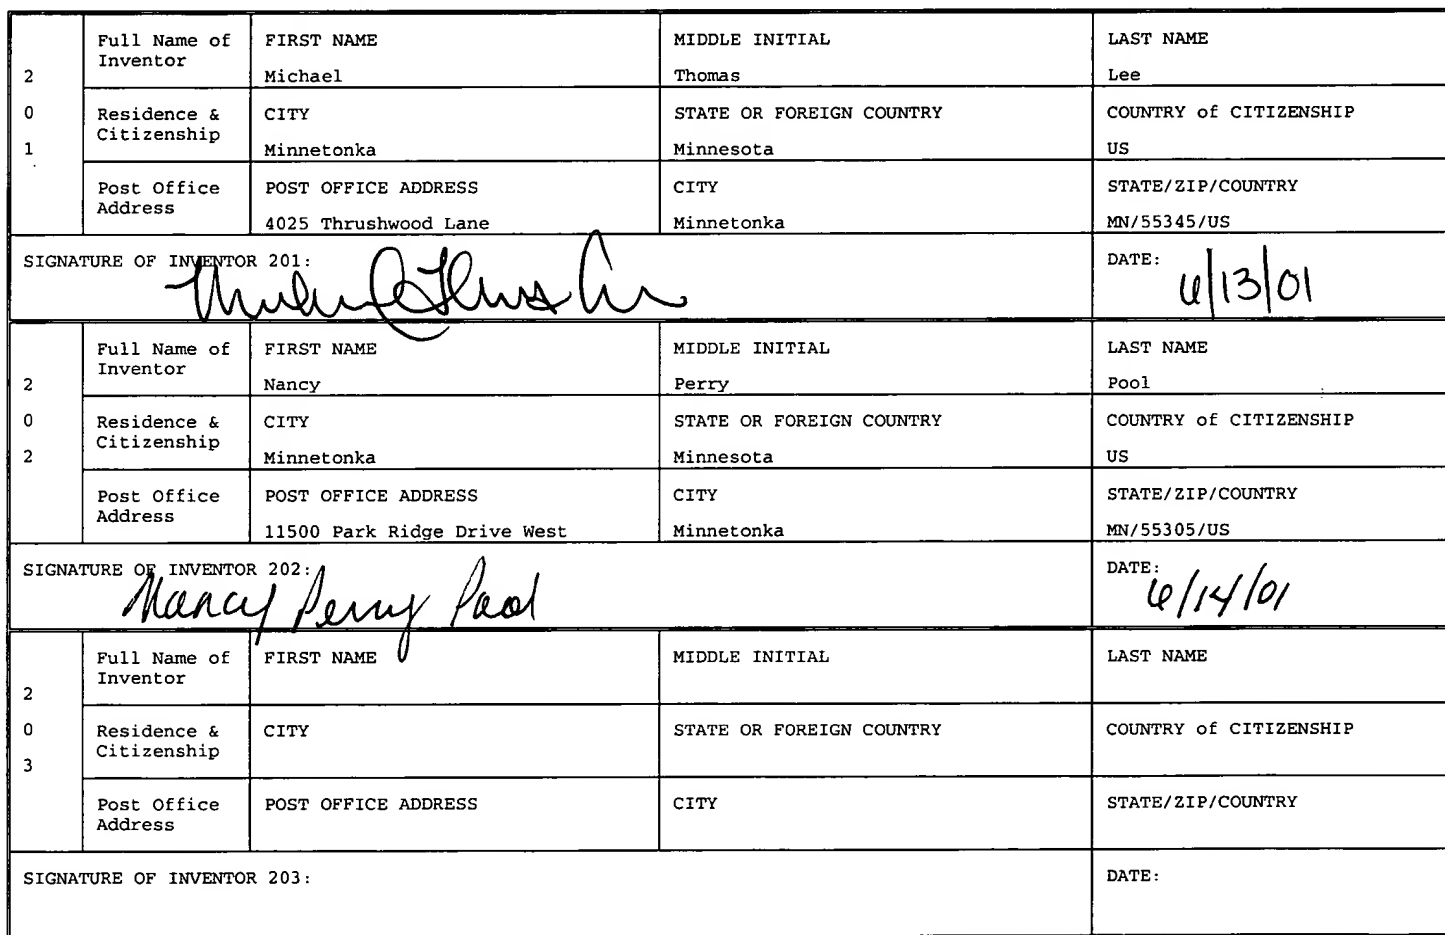 2 0 1
Full Name of Inventor
FIRST NAME
Michael
MIDDLE INITIAL
Thomas
LAST NAME
Lee
Residence & Citizenship
CITY
Minnetonka
STATE OR FOREIGN COUNTRY
Minnesota
COUNTRY of CITIZENSHIP
US
Post Office Address
POST OFFICE ADDRESS
4025 Thrushwood Lane
CITY
Minnetonka
STATE/ZIP/COUNTRY
MN/55345/US
SIGNATURE OF INVENTOR 201:
DATE: 6/13/01
2 0 2
Full Name of Inventor
FIRST NAME
Nancy
MIDDLE INITIAL
Perry
LAST NAME
Pool
Residence & Citizenship
CITY
Minnetonka
STATE OR FOREIGN COUNTRY
Minnesota
COUNTRY of CITIZENSHIP
US
Post Office Address
POST OFFICE ADDRESS
11500 Park Ridge Drive West
CITY
Minnetonka
STATE/ZIP/COUNTRY
MN/55305/US
SIGNATURE OF INVENTOR 202:
Nancy Perry Pool
DATE: 6/14/01
2 0 3
Full Name of Inventor
FIRST NAME
MIDDLE INITIAL
LAST NAME
Residence & Citizenship
CITY
STATE OR FOREIGN COUNTRY
COUNTRY of CITIZENSHIP
Post Office Address
POST OFFICE ADDRESS
CITY
STATE/ZIP/COUNTRY
SIGNATURE OF INVENTOR 203:
DATE: